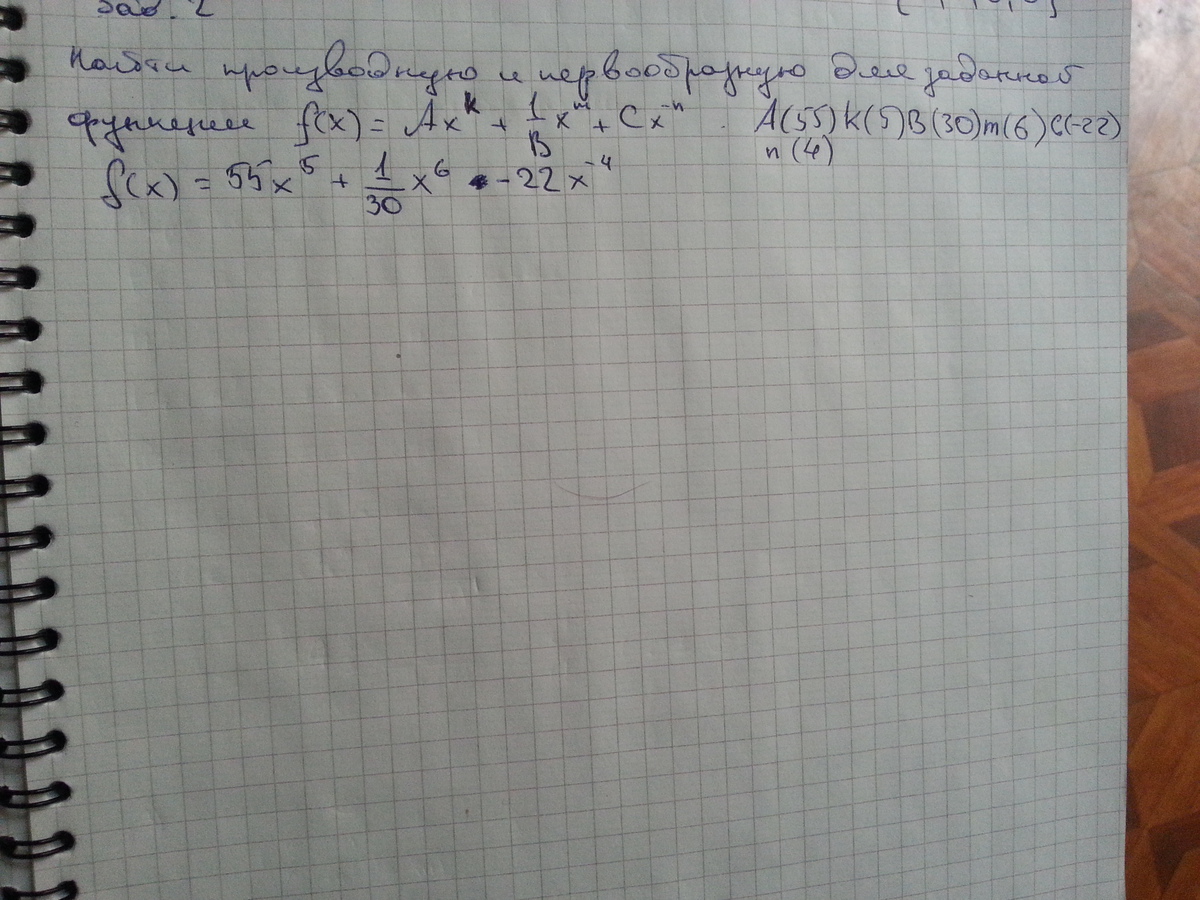 Зад. 2
Найти производную и первообразную для заданной
функции f(x) = Ax^k + 1/B x^m + Cx^-n . A(55) k(5) B(30) m(6) C(-22)
n(4)
f(x) = 55x^5 + 1/30 x^6 - 22x^-4